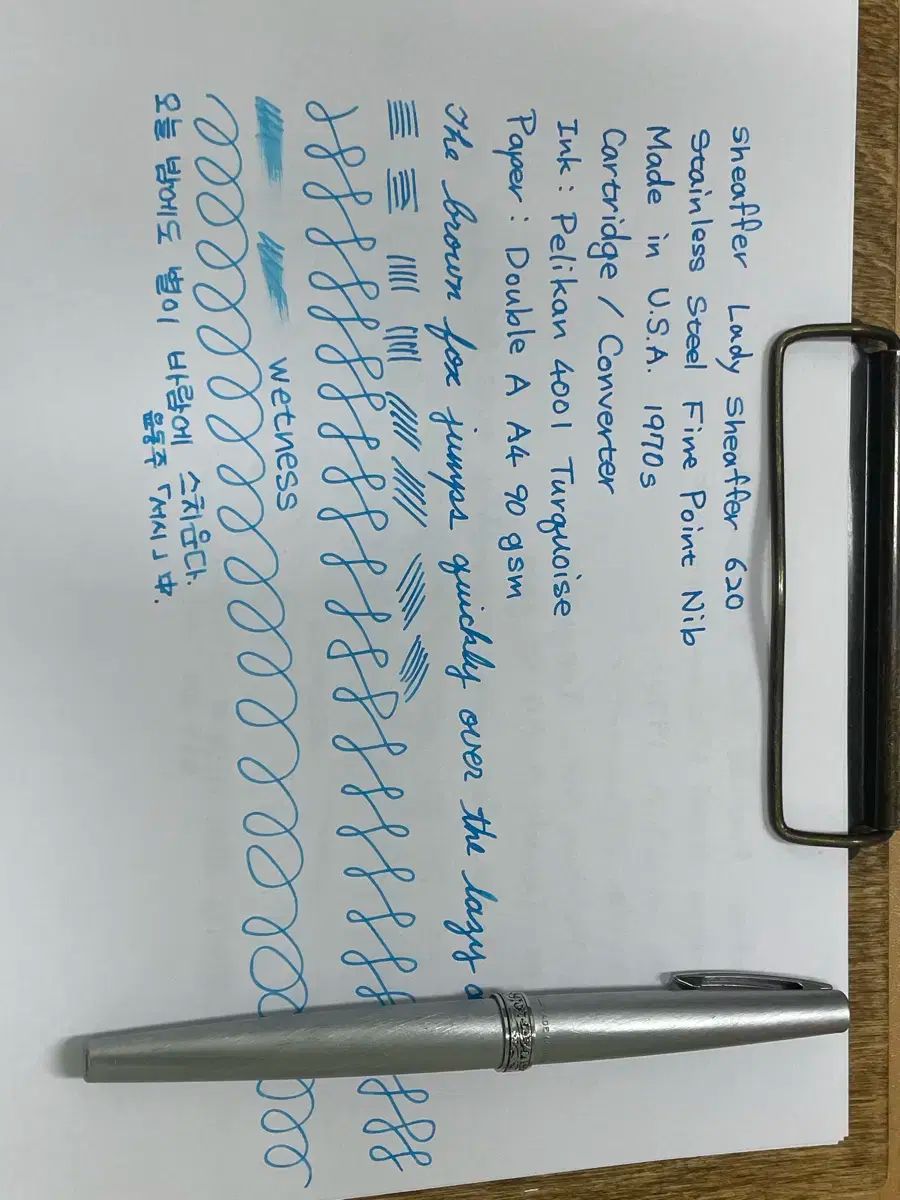 Sheaffer Lady Sheaffer 620
Stainless Steel Fine Point Nib
Made in U.S.A. 1970s
Cartridge / Converter
Ink : Pelikan 4001 Turquoise
Paper : Double A A4 90 gsm
The brown fox jumps quickly over the lazy
wetness
오늘 밤에도 별이 바람에 스치운다.
윤동주 「서시」 中.